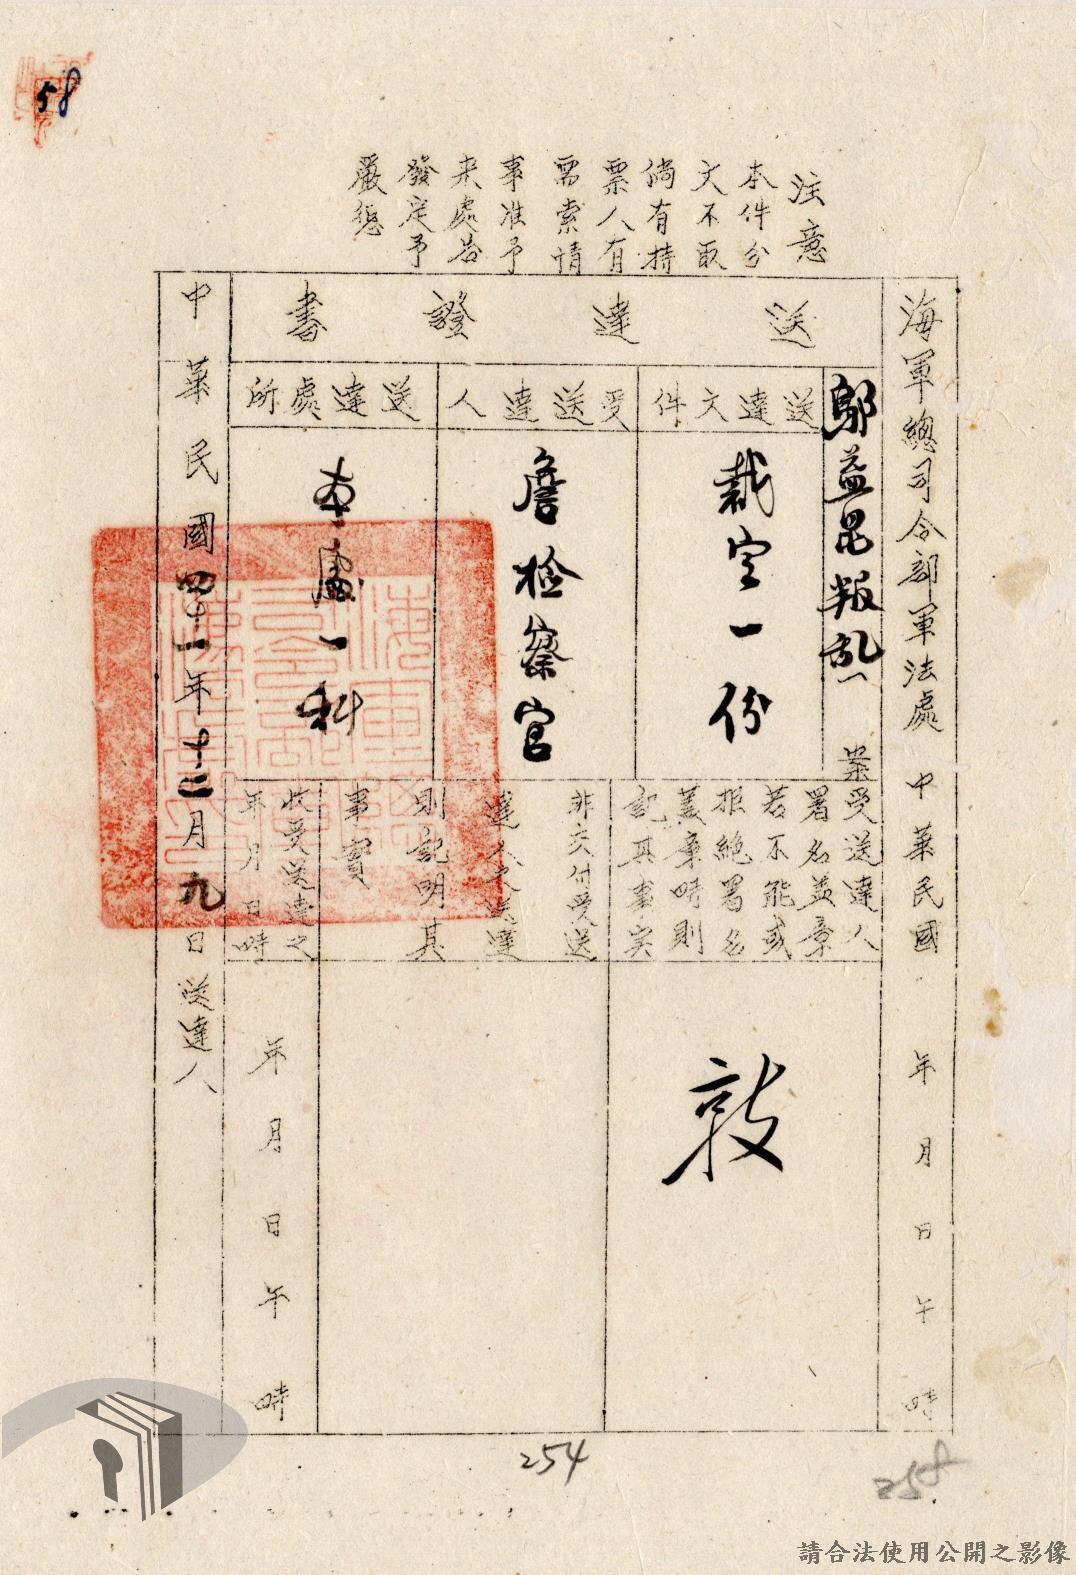 58
注意
本件分
文不取
倘有持
票人有
需索情
事准予
来處告
發定予
嚴懲
海軍總司令部軍法處 中華民國 年 月 日 午 時
送達證書
鄔益昆叛乱 案
送達文件
裁定一份
受送達人
詹檢察官
送達處所
本處一科
受送達人
署名蓋章
若不能或
拒絕署名
蓋章時則
記其事实
敦
非交付受送
達人之送達
則記明其
事實
收受送達之
年月日時
年 月 日 午 時
中華民國四十一年十二月九日送達人
254
258
請合法使用公開之影像